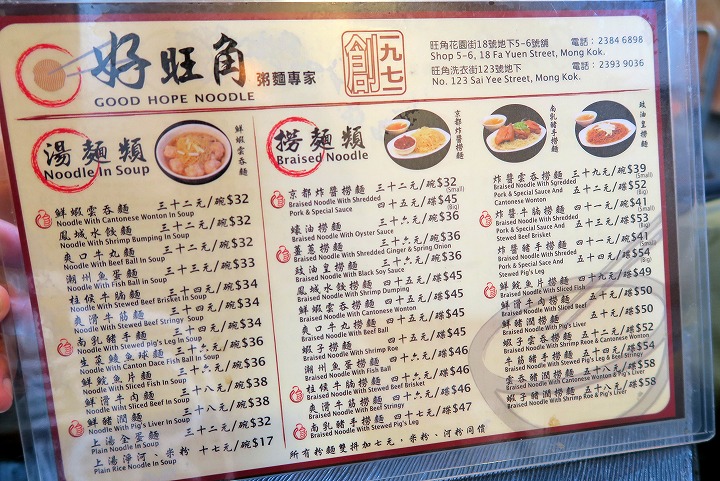 好旺角 粥麵專家
GOOD HOPE NOODLE
創一九七一
旺角花園街18號地下5-6號舖 電話：2384 6898
Shop 5-6, 18 Fa Yuen Street, Mong Kok.
旺角洗衣街123號地下 電話：2393 9036
No. 123 Sai Yee Street, Mong Kok.
湯麵類
Noodle In Soup
鮮蝦雲吞麵
鮮蝦雲吞麵 三十二元/碗$32
Noodle With Cantonese Wonton In Soup
鳳城水餃麵 三十二元/碗$32
Noodle With Shrimp Bumping In Soup
爽口牛丸麵 三十二元/碗$32
Noodle With Beef Ball In Soup
潮州魚蛋麵 三十三元/碗$33
Noodle With Fish Ball in Soup
柱候牛腩麵 三十四元/碗$34
Noodle With Stewed Beef Brisket In Soup
爽滑牛筋麵 三十四元/碗$34
Noodle With Stewed Beef Stringy Soup
南乳豬手麵 三十四元/碗$34
Noodle With Stewed pig's Leg In Soup
生菜鯪魚球麵 三十六元/碗$36
Noodle With Canton Dace Fish Ball In Soup
鮮鯇魚片麵 三十六元/碗$36
Noodle With Sliced Fish In Soup
鮮滑牛肉麵 三十八元/碗$38
Noodle With Sliced Beef In Soup
鮮豬潤麵 三十八元/碗$38
Noodle With Pig's Liver In Soup
上湯全蛋麵 三十二元/碗$32
Plain Noodle In Soup
上湯淨河、米粉 十七元/碗$17
Plain Rice Noodle In Soup
撈麵類
Braised Noodle
京都炸醬撈麵
南乳豬手撈麵
豉油皇撈麵
京都炸醬撈麵 三十二元/碗$32 (Small)
Braised Noodle With Shredded
Pork & Special Sauce 四十五元/碟$45 (Big)
蠔油撈麵 三十六元/碗$36
Braised Noodle With Oyster Sauce
薑蔥撈麵 三十六元/碗$36
Braised Noodle With Shredded Ginger & Spring Onion
豉油皇撈麵 三十六元/碟$36
Braised Noodle With Black Soy Sauce
鳳城水餃撈麵 四十五元/碟$45
Braised Noodle With Shrimp Dumping
鮮蝦雲吞撈麵 四十五元/碟$45
Braised Noodle With Cantonese Wonton
爽口牛丸撈麵 四十五元/碟$45
Braised Noodle With Beef Ball
蝦子撈麵 四十五元/碟$45
Braised Noodle With Shrimp Roe
潮州魚蛋撈麵 四十六元/碟$46
Braised Noodle With Fish Ball
柱候牛腩撈麵 四十六元/碟$46
Braised Noodle With Stewed Beef Brisket
爽滑牛筋撈麵 四十六元/碟$46
Braised Noodle With Beef Stringy
南乳豬手撈麵 四十七元/碟$47
Braised Noodle With Stewed Pig's Leg
炸醬雲吞撈麵 三十九元/碗$39 (Small)
Braised Noodle With Sgredded
Pork & Special Sauce And 五十二元/碟$52 (Big)
Cantonese Wonton
炸醬牛腩撈麵 四十一元/碗$41 (Small)
Braised Noodle With Shredded
Pork & Special Sauce And 五十三元/碟$53 (Big)
Stewed Beef Brisket
炸醬豬手撈麵 四十一元/碗$41 (Small)
Braised Noodle With Shreded
Pork & Special Sace And 五十四元/碟$54 (Big)
Stewed Pig's Leg
鮮鯇魚片撈麵 四十九元/碟$49
Braised Noodle With Sliced Fish
鮮滑牛肉撈麵 五十元/碟$50
Braised Noodle With Sliced Beef
鮮豬潤撈麵 五十元/碟$50
Braised Noodle With Pig's Liver
蝦子雲吞撈麵 五十二元/碟$52
Braised Noodle With Shrimp Roe & Cantonese Wonton
牛筋豬手撈麵 五十四元/碟$54
Braised Noodle With Stewed Pig's Leg & Beef Stringy
雲吞豬潤撈麵 五十八元/碟$58
Braised Noodle With Cantonese Wonton & Pig's Liver
蝦子豬潤撈麵 五十八元/碟$58
Braised Noodle With Shrimp Roe & Pig's Liver
所有粉麵雙拼加七元，米粉、河粉同價